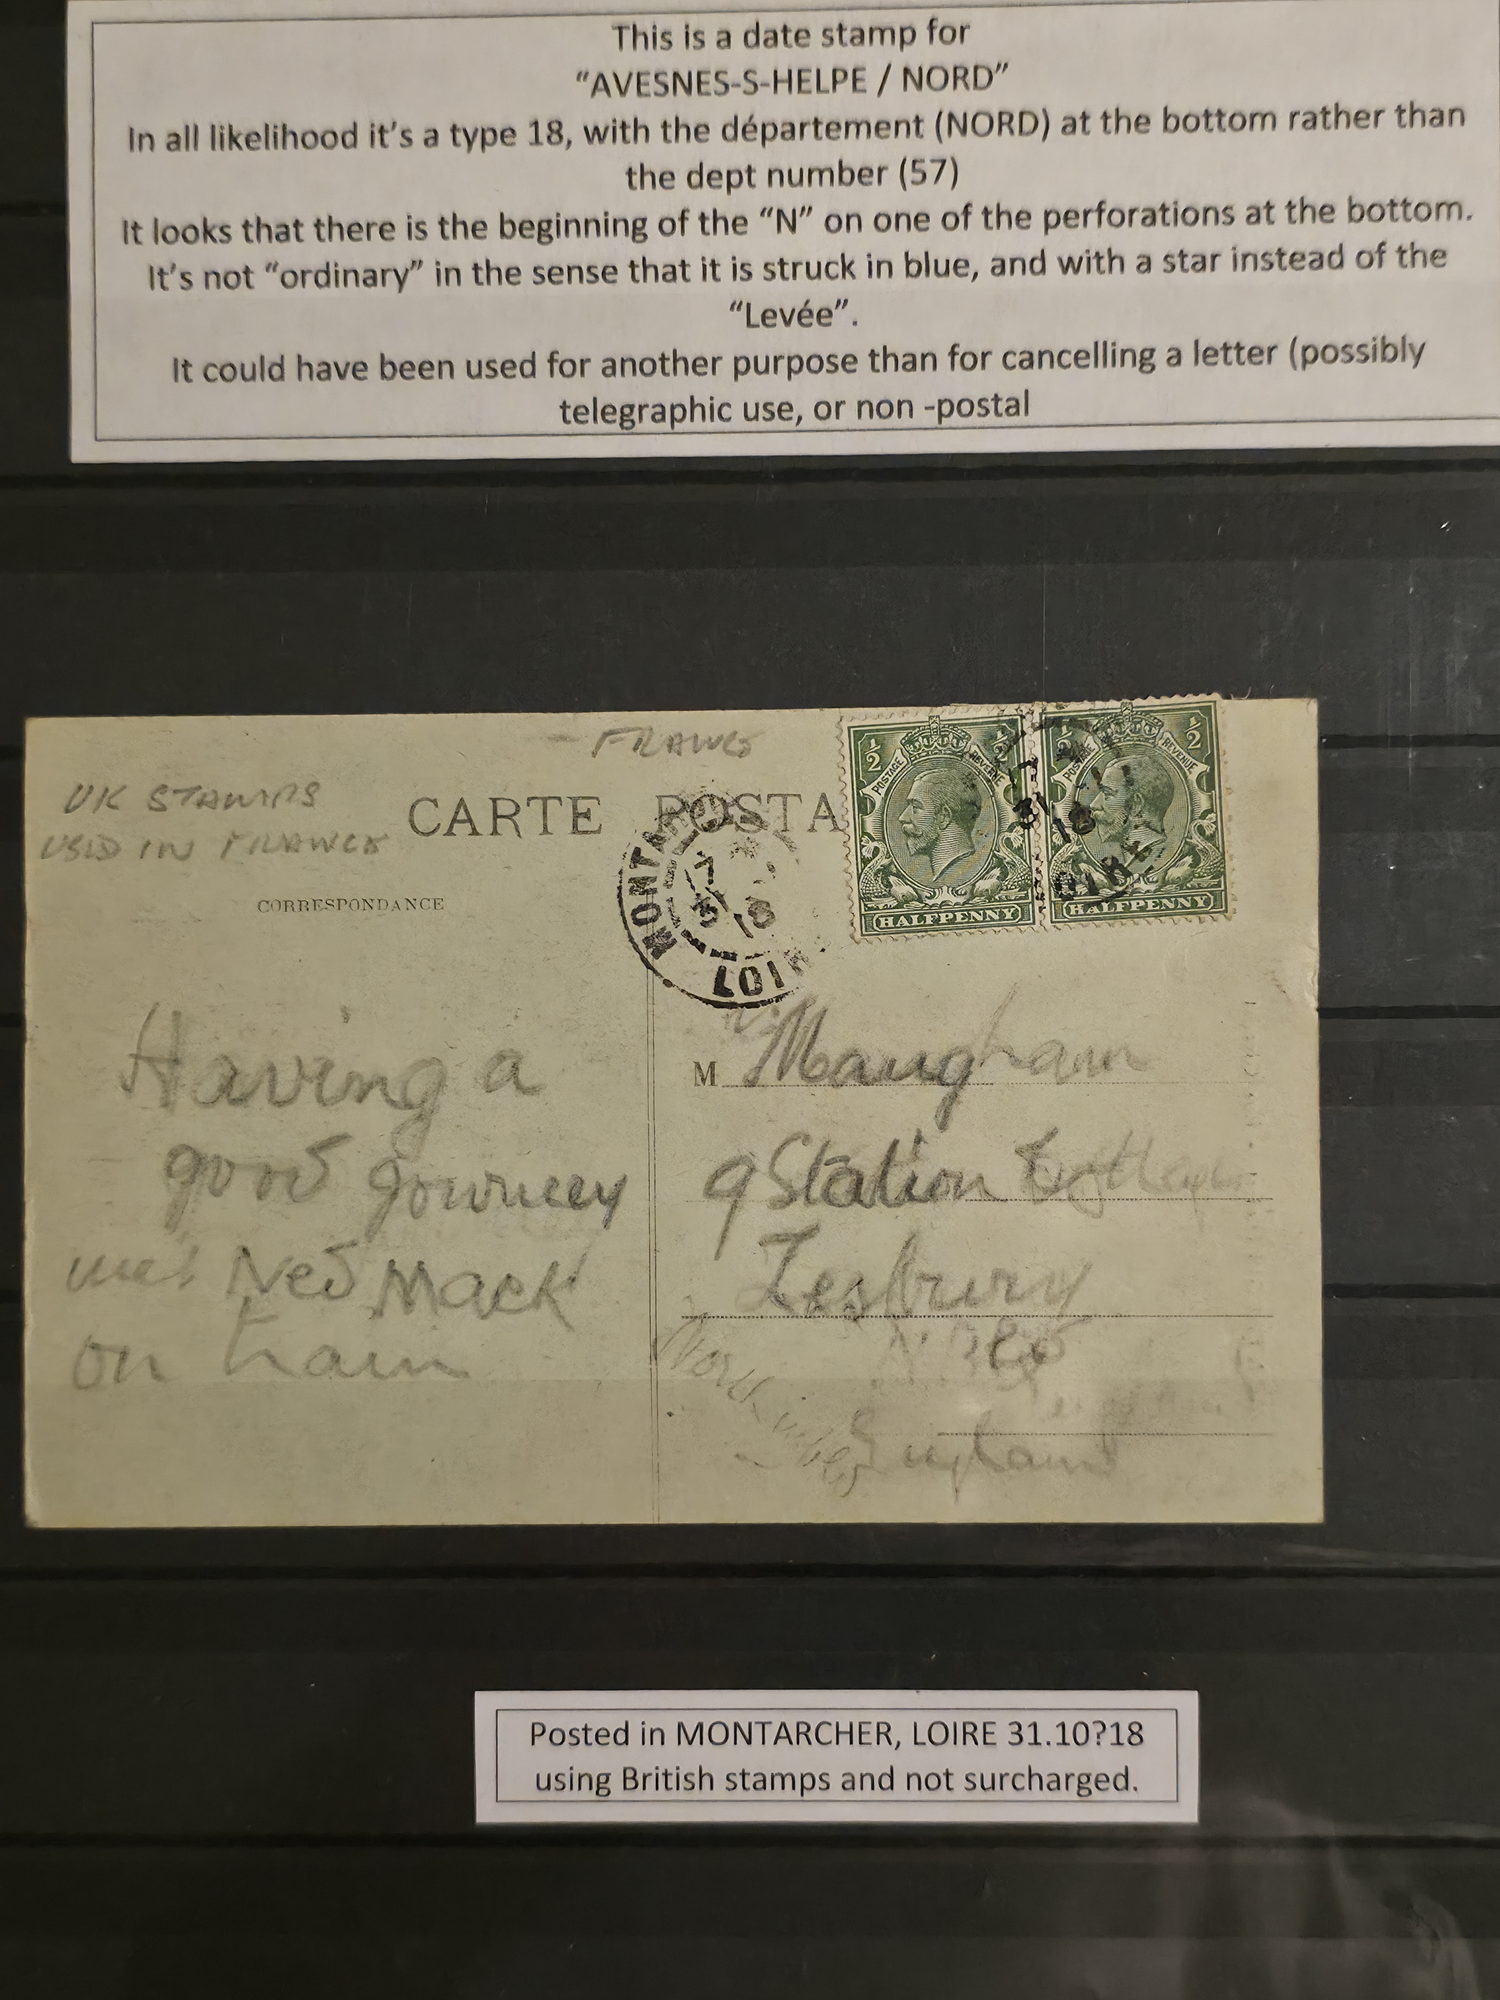 This is a date stamp for
“AVESNES-S-HELPE / NORD”
In all likelihood it’s a type 18, with the département (NORD) at the bottom rather than
the dept number (57)
It looks that there is the beginning of the “N” on one of the perforations at the bottom.
It’s not “ordinary” in the sense that it is struck in blue, and with a star instead of the
“Levée”.
It could have been used for another purpose than for cancelling a letter (possibly
telegraphic use, or non -postal
- FRANCE
UK STAMPS
USED IN FRANCE
CARTE POSTA
CORRESPONDANCE
½ ½
POSTAGE REVENUE
HALFPENNY
½ ½
POSTAGE REVENUE
HALFPENNY
MONTA
7
31
18
LOI
31
18
Having a
good journey
met Ned Mack
on train
M Maugham
9 Station
Lesbury
England
Posted in MONTARCHER, LOIRE 31.10?18
using British stamps and not surcharged.